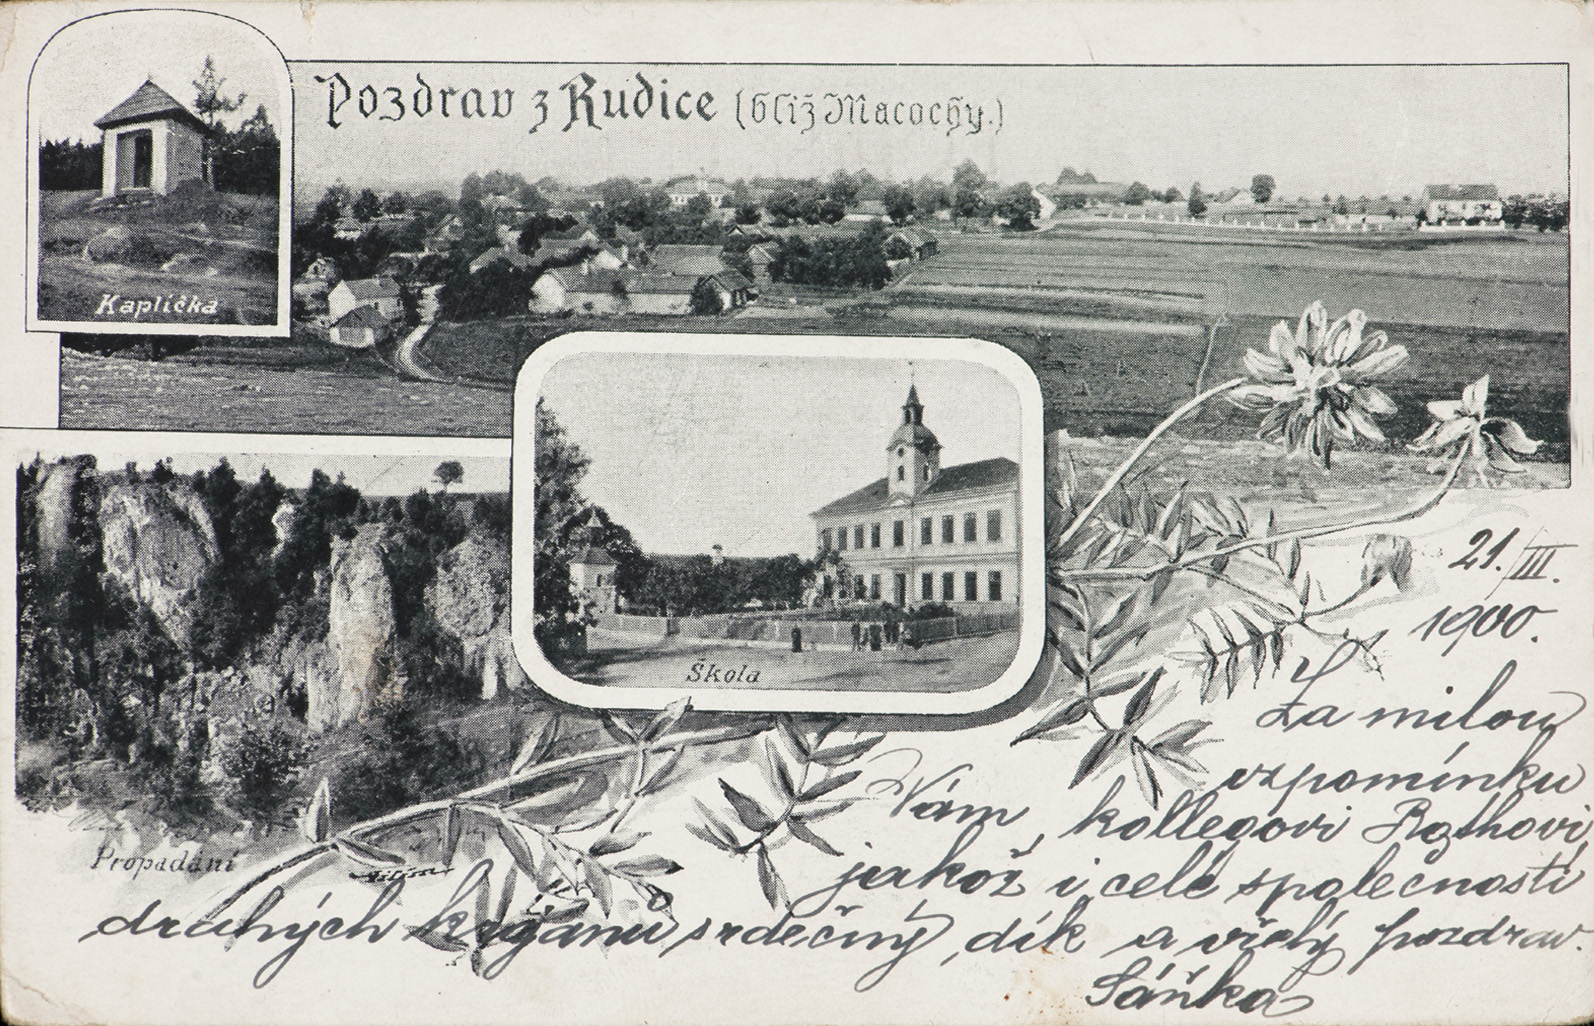 Pozdrav z Rudice (blíž Macochy.)
Kaplička
Škola
Propadání
21./III.
1900.
Za milou
vzpomínku
Vám, kollegovi Rothovi,
jakož i celé společnosti
druhých krajanů srdečný dík a vřelý pozdrav.
Sáňka